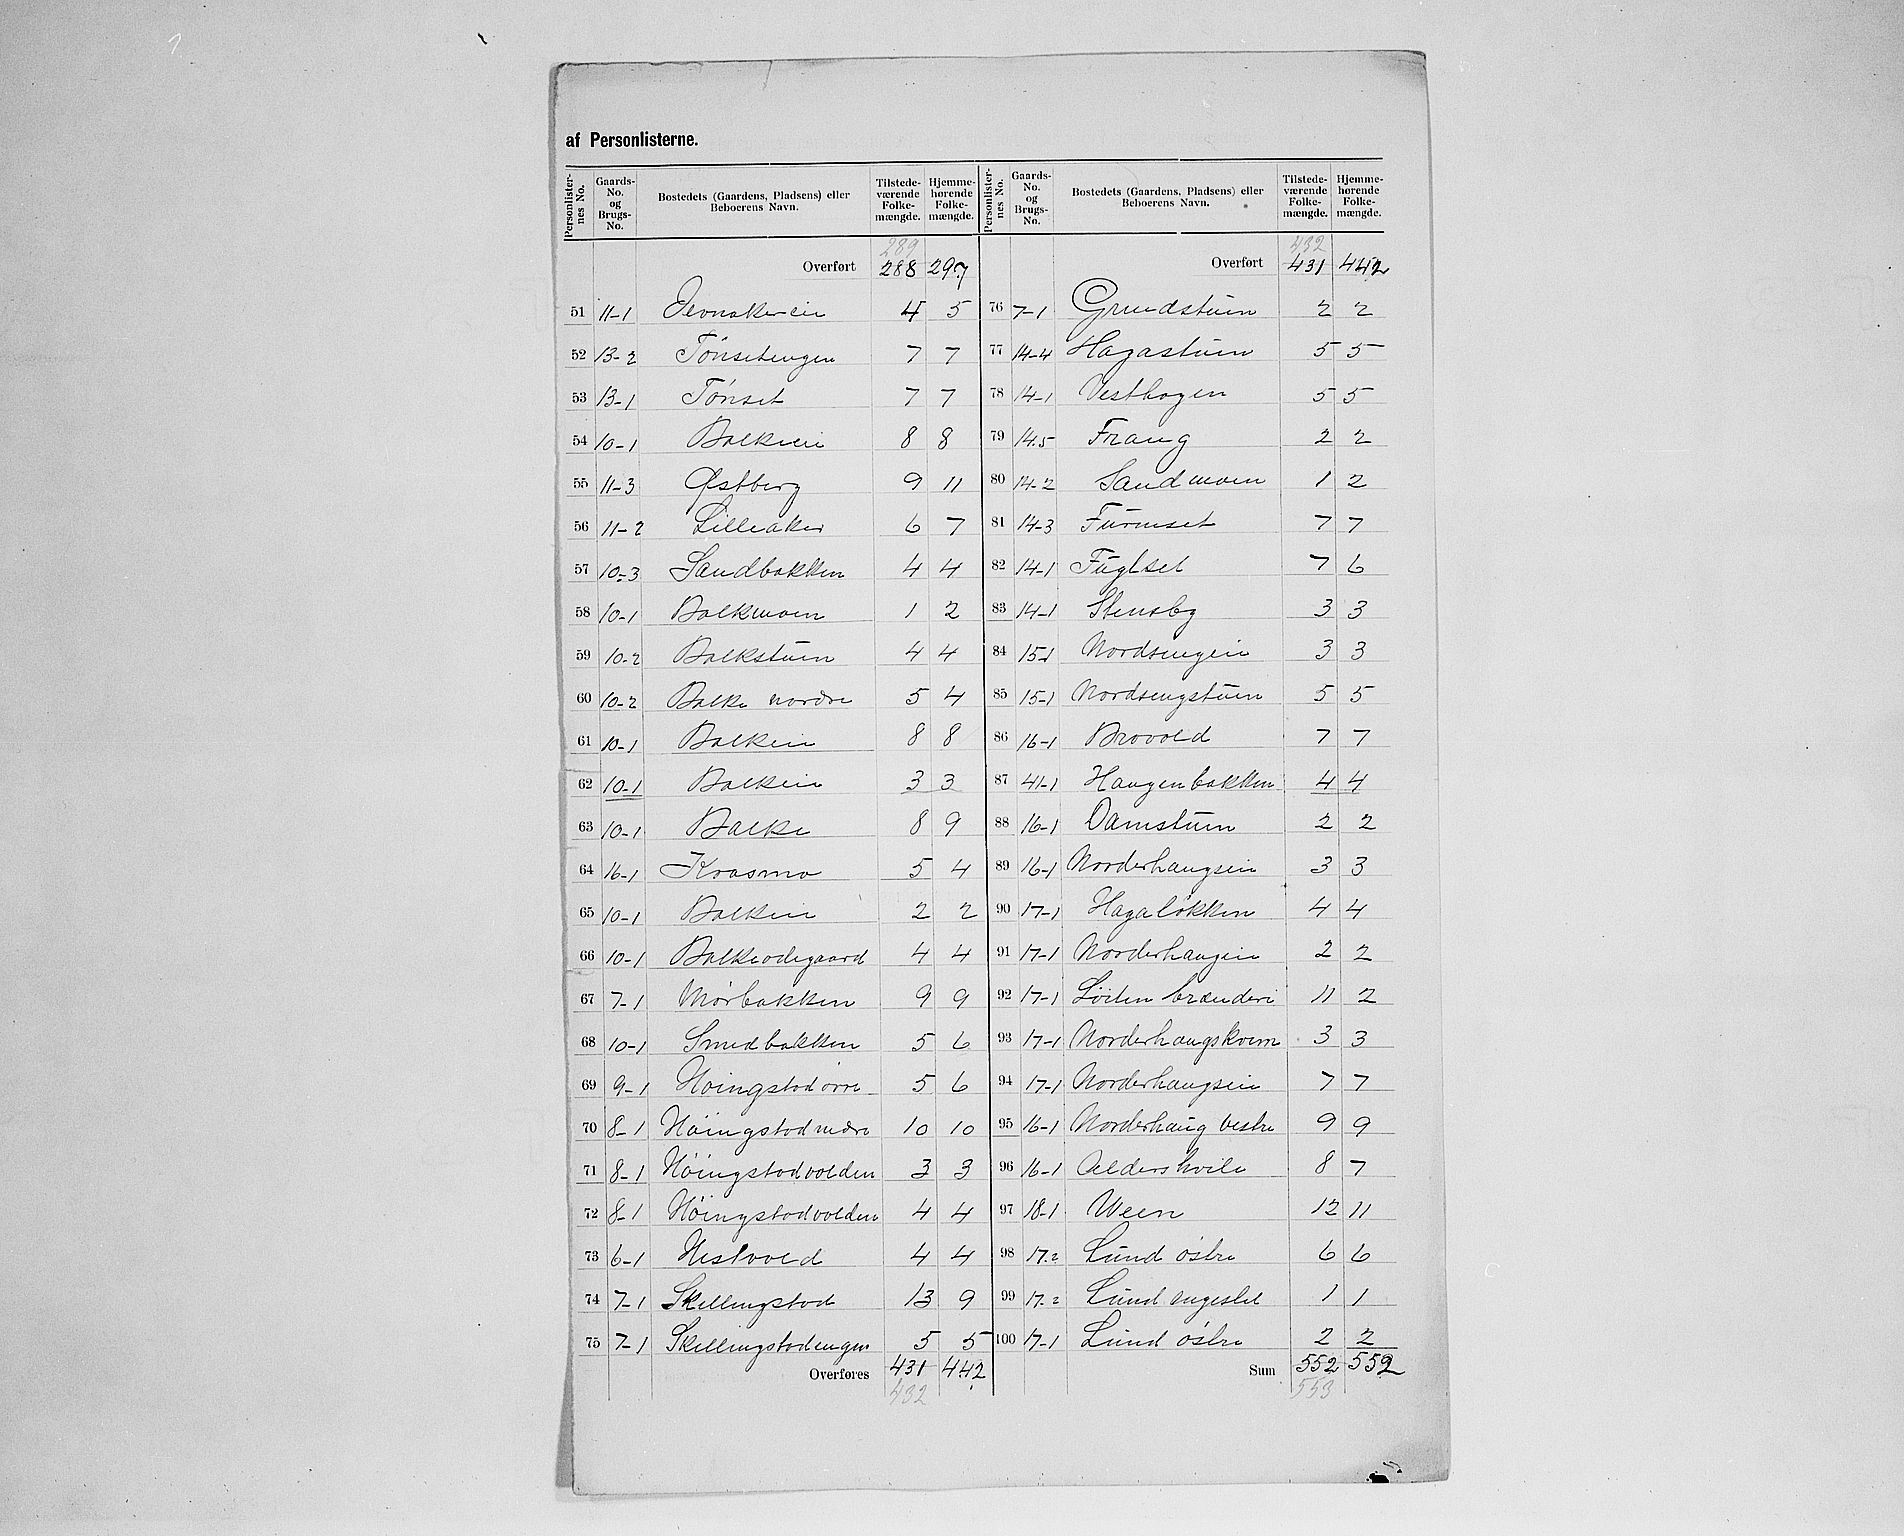 af Personlisterne.
Personlister-nes No. Gaards-No. og Brugs-No. Bostedets (Gaardens, Pladsens) eller Beboerens Navn. Tilstede-værende Folke-mængde. Hjemme-hørende Folke-mængde.
289
Overført 288 297
51 11-1 Jevnakereie 4 5
52 13-2 Tönsetengen 7 7
53 13-1 Tönset 7 7
54 10-1 Balkeeie 8 8
55 11-3 Østberg 9 11
56 11-2 Lilleaker 6 7
57 10-3 Sandbakken 4 4
58 10-1 Balkmoen 1 2
59 10-2 Balkstuen 4 4
60 10-2 Balke nordre 5 4
61 10-1 Balkeie 8 8
62 10-1 Balkeie 3 3
63 10-1 Balke 8 9
64 16-1 Krasmo 5 4
65 10-1 Balkeie 2 2
66 10-1 Balkeodegaard 4 4
67 7-1 Mörbakken 9 9
68 10-1 Smedbakken 5 6
69 9-1 Höingstad övre 5 6
70 8-1 Höingstad nedre 10 10
71 8-1 Höingstadvolden 3 3
72 8-1 Höingstadvolden 4 4
73 6-1 Hestvold 4 4
74 7-1 Skillingstad 13 9
75 7-1 Skillingstadengen 5 5
Overføres 431 442
432
Personlister-nes No. Gaards-No. og Brugs-No. Bostedets (Gaardens, Pladsens) eller Beboerens Navn. Tilstede-værende Folke-mængde. Hjemme-hørende Folke-mængde.
432
Overført 431 442
76 7-1 Grundstuen 2 2
77 14-4 Hagastuen 5 5
78 14-1 Vesthagen 5 5
79 14.5 Frang 2 2
80 14-2 Sandmoen 1 2
81 14-3 Furuset 7 7
82 14-1 Fuglset 7 6
83 14-1 Stensby 3 3
84 15-1 Nordsengeie 3 3
85 15-1 Nordsengstuen 5 5
86 16-1 Brovold 7 7
87 41-1 Haugenbakken 4 4
88 16-1 Damstuen 2 2
89 16-1 Norderhaugseie 3 3
90 17-1 Hagalökken 4 4
91 17-1 Norderhaugeie 2 2
92 17-1 Löiten brænderi 11 2
93 17-1 Norderhaugskvern 3 3
94 17-1 Norderhaugseie 7 7
95 16-1 Norderhaug vestre 9 9
96 16-1 Aldershvile 8 7
97 18-1 Ween 12 11
98 17.2 Lund östre 6 6
99 17.2 Lund 1 1
100 17-1 Lund östre 2 2
Sum 552 552
553